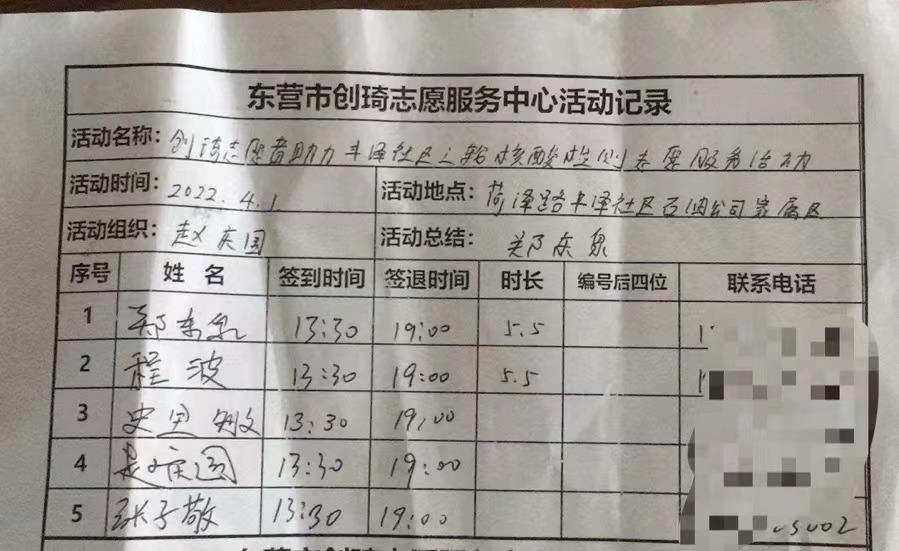 东营市创琦志愿服务中心活动记录
活动名称：创琦志愿者助力丰泽社区三轮核酸检测志愿服务活动
活动时间：2022.4.1 活动地点：菏泽路丰泽社区石油公司家属区
活动组织：赵庆国 活动总结：郑东泉
序号 姓名 签到时间 签退时间 时长 编号后四位 联系电话
1 郑东泉 13:30 19:00 5.5
2 程波 13:30 19:00 5.5
3 史 敏 13:30 19:00
4 赵庆国 13:30 19:00
5 张子敬 13:30 19:00